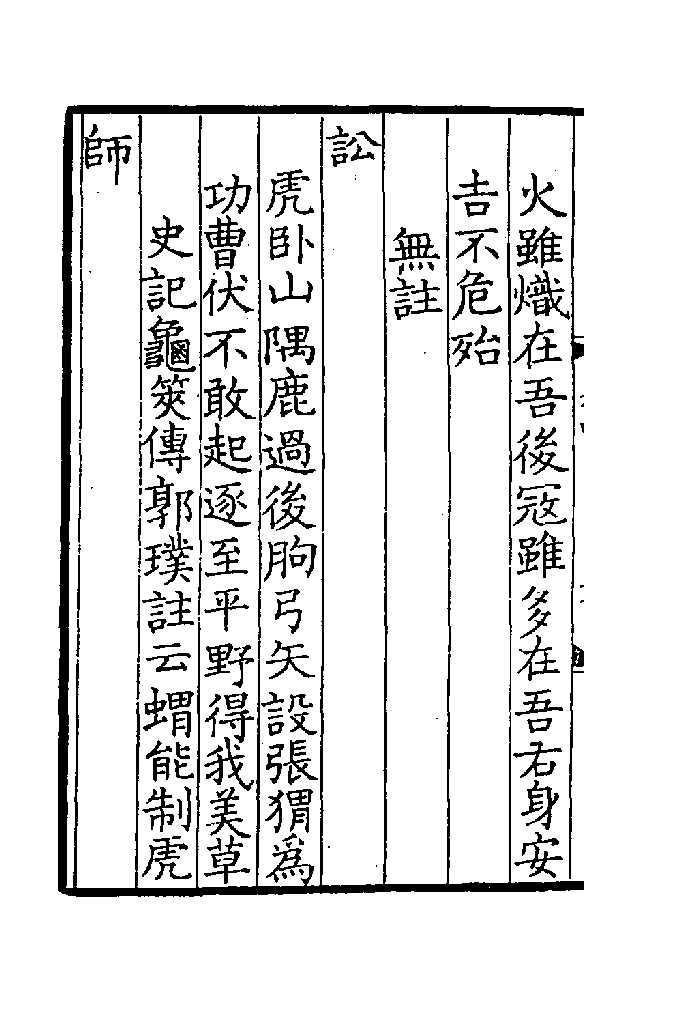 火雖熾在吾後冦雖多在吾右身安
吉不危殆
無註
訟
虎卧山隅鹿過後朐弓矢設張猬爲
功曹伏不敢起逐至平野得我美草
史記龜筴傳郭璞註云蝟能制虎
師